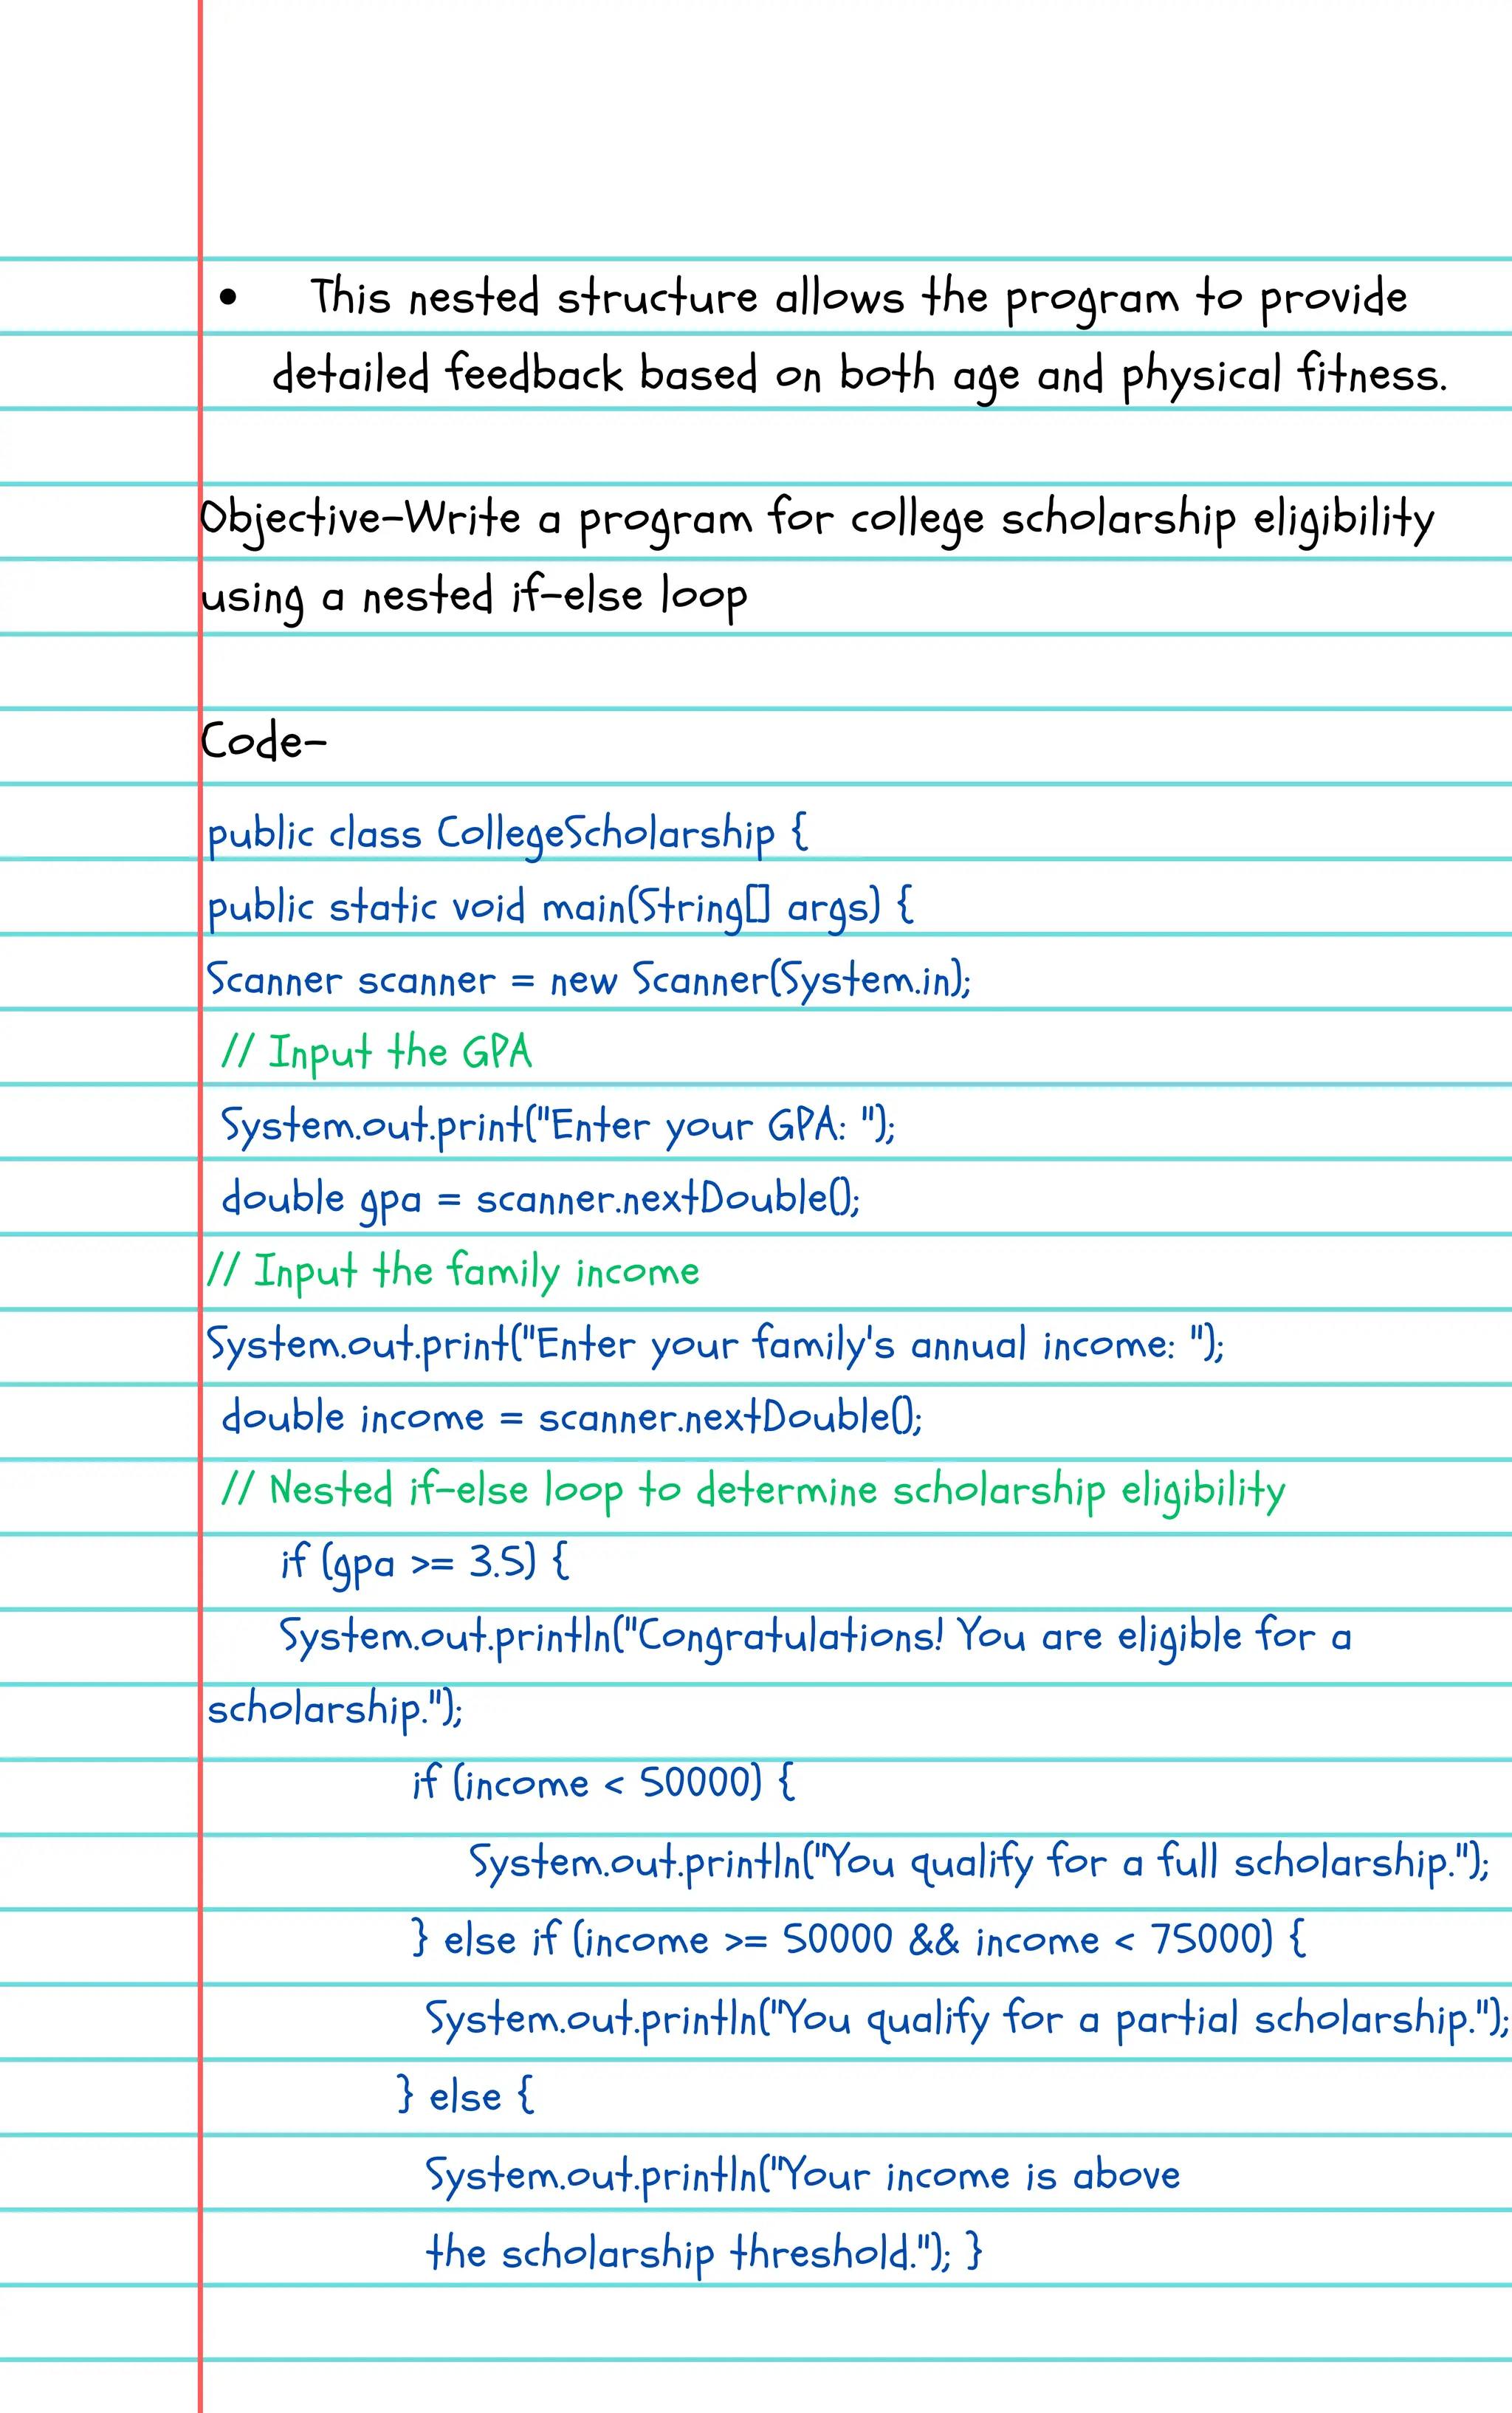 • This nested structure allows the program to provide
detailed feedback based on both age and physical fitness.
Objective-Write a program for college scholarship eligibility
using a nested if-else loop
Code-
public class CollegeScholarship {
public static void main(String[] args) {
Scanner scanner = new Scanner(System.in);
// Input the GPA
System.out.print("Enter your GPA: ");
double gpa = scanner.nextDouble();
// Input the family income
System.out.print("Enter your family's annual income: ");
double income = scanner.nextDouble();
// Nested if-else loop to determine scholarship eligibility
if (gpa >= 3.5) {
System.out.println("Congratulations! You are eligible for a
scholarship.");
if (income < 50000) {
System.out.println("You qualify for a full scholarship.");
} else if (income >= 50000 && income < 75000) {
System.out.println("You qualify for a partial scholarship.");
} else {
System.out.println("Your income is above
the scholarship threshold."); }